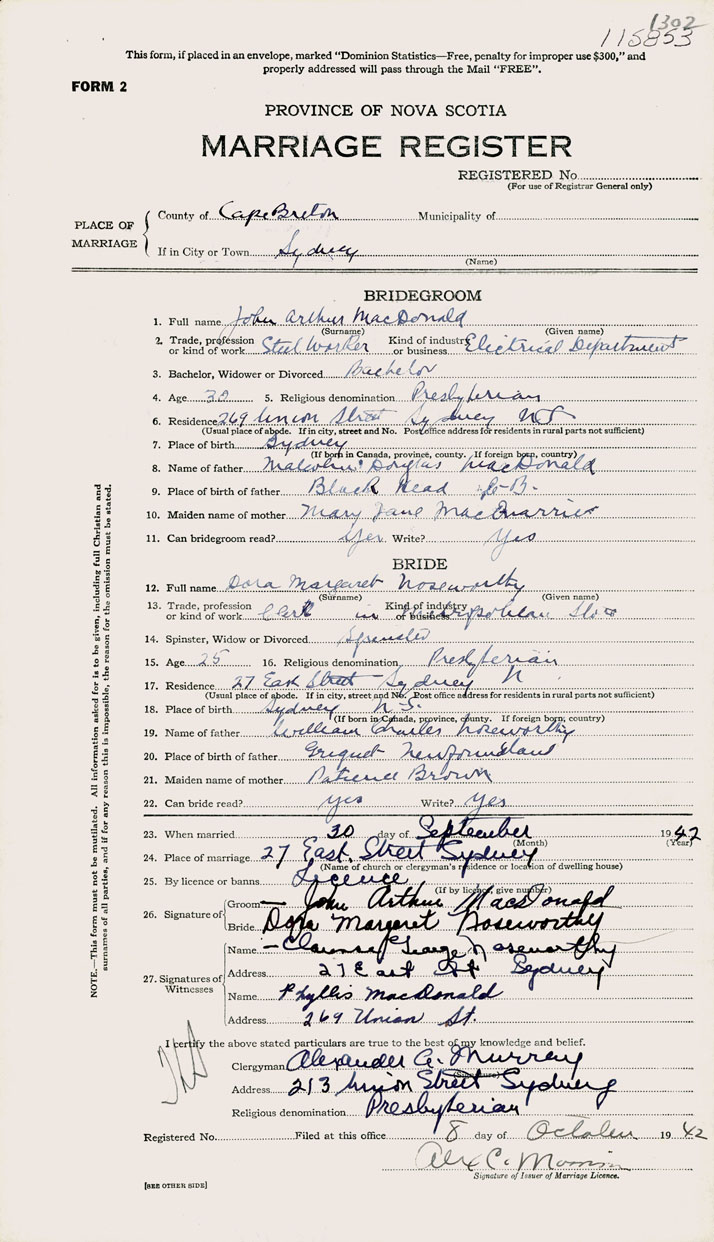 1302
115853
This form, if placed in an envelope, marked "Dominion Statistics—Free, penalty for improper use $300," and
properly addressed will pass through the Mail "FREE".
FORM 2
PROVINCE OF NOVA SCOTIA
MARRIAGE REGISTER
REGISTERED No.
(For use of Registrar General only)
PLACE OF MARRIAGE
County of Cape Breton Municipality of
If in City or Town Sydney
(Name)
BRIDEGROOM
1. Full name John Arthur MacDonald
(Surname) (Given name)
2. Trade, profession or kind of work Steel Worker Kind of industry or business Electrical Department
3. Bachelor, Widower or Divorced Bachelor
4. Age 30 5. Religious denomination Presbyterian
6. Residence 269 Union Street Sydney NS
(Usual place of abode. If in city, street and No. Post office address for residents in rural parts not sufficient)
7. Place of birth Sydney
(If born in Canada, province, county. If foreign born, country)
8. Name of father Malcolm Douglas MacDonald
9. Place of birth of father Black Head C.B.
10. Maiden name of mother Mary Jane MacQuarrie
11. Can bridegroom read? Yes Write? Yes
BRIDE
12. Full name Dora Margaret Noseworthy
(Surname) (Given name)
13. Trade, profession or kind of work Clerk in Kind of industry or business Metropolitan Store
14. Spinster, Widow or Divorced Spinster
15. Age 25 16. Religious denomination Presbyterian
17. Residence 27 East Street Sydney N
(Usual place of abode. If in city, street and No. Post office address for residents in rural parts not sufficient)
18. Place of birth Sydney N.S.
(If born in Canada, province, county. If foreign born, country)
19. Name of father William Charles Noseworthy
20. Place of birth of father Griquet Newfoundland
21. Maiden name of mother Patience Brown
22. Can bride read? yes Write? Yes
23. When married 30 day of September 1942
(Month) (Year)
24. Place of marriage 27 East Street Sydney
(Name of church or clergyman's residence or location of dwelling house)
25. By licence or banns Licence
(If by licence, give number)
26. Signature of
Groom John Arthur MacDonald
Bride Dora Margaret Noseworthy
27. Signatures of Witnesses
Name Clarence George Noseworthy
Address 27 East St Sydney
Name Phyllis MacDonald
Address 269 Union St.
I certify the above stated particulars are true to the best of my knowledge and belief.
Clergyman Alexander A. Murray
(Signature)
Address 213 Union Street Sydney
Religious denomination Presbyterian
Registered No. Filed at this office 8 day of October 1942
Signature of Issuer of Marriage Licence.
[SEE OTHER SIDE]
NOTE.—This form must not be mutilated. All information asked for is to be given, including full Christian and
surnames of all parties, and if for any reason this is impossible, the reason for the omission must be stated.